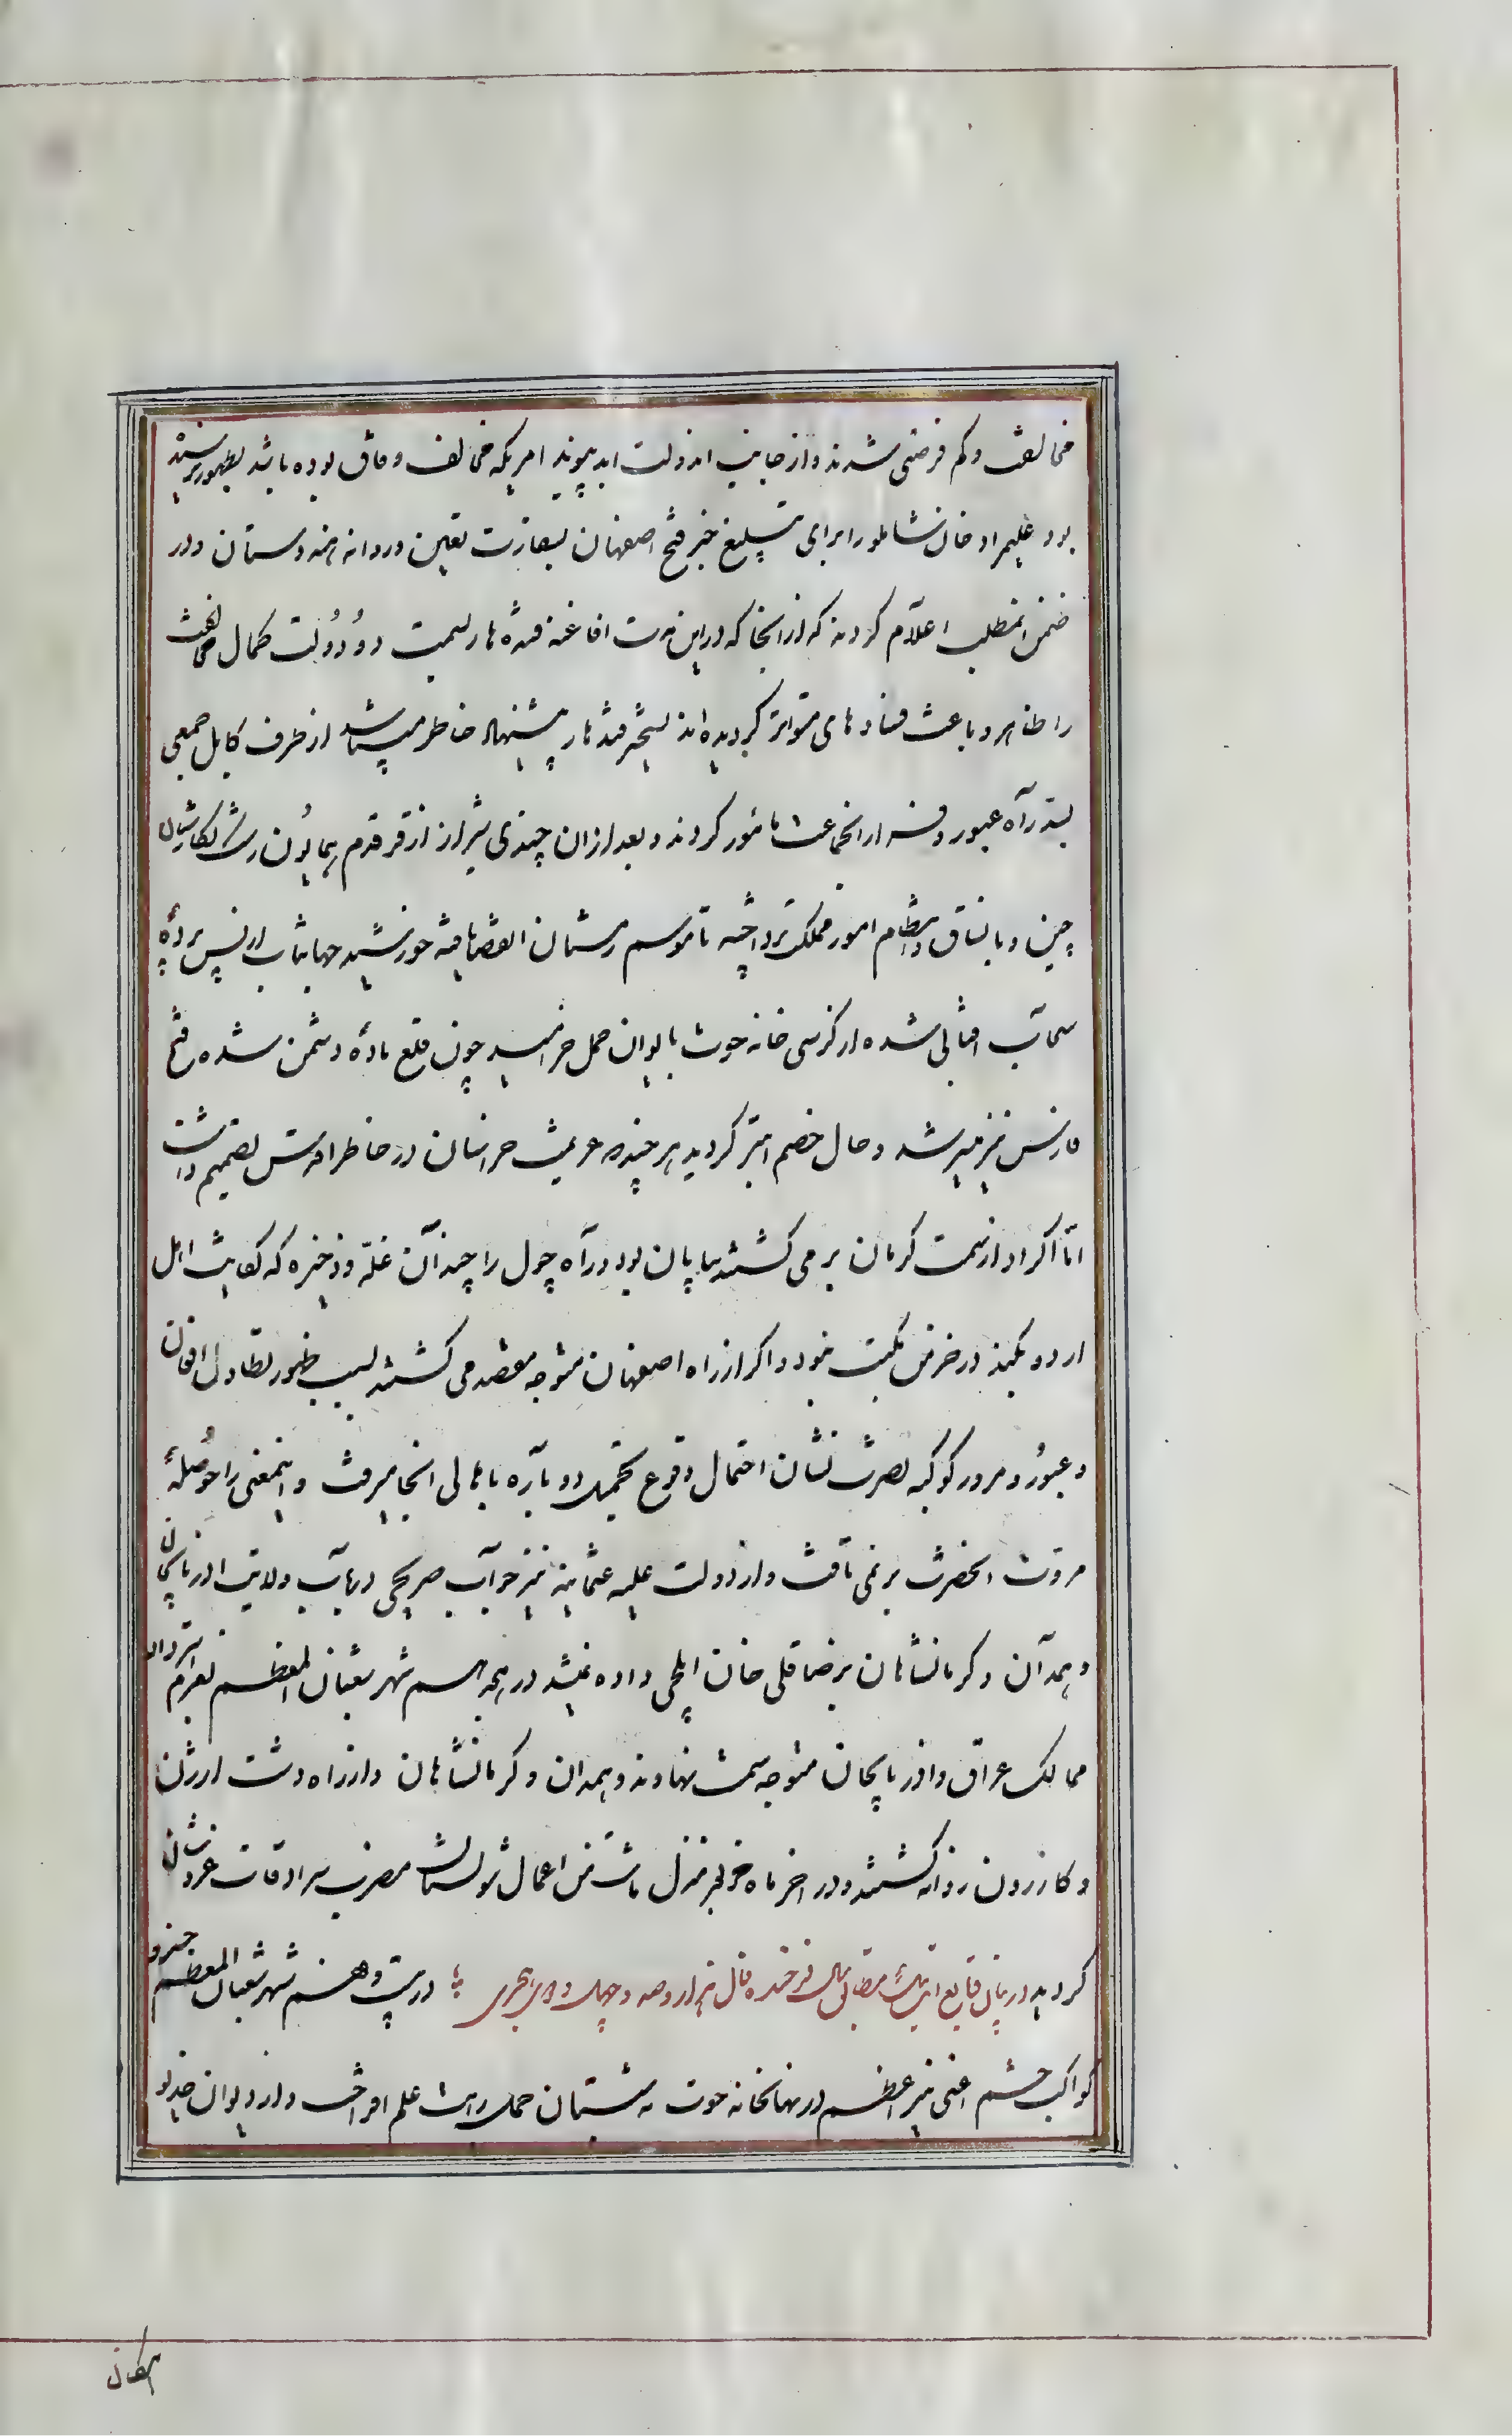 مخالفت و کم فرصتی شدند و از جانب این دولت ابد پیوند امریکه مخالف وفاق بوده باشد بظهور نرسیده
بود علیمراد خان شاملو را برای تبلیغ خبر فتح اصفهان بسفارت تعیین و روانه هندوستان و در
ضمن انمطلب اعلام کردند که از انجا که در این مدت افاغنه قندهار نسبت دو دولت کمال مخالفت
را ظاهر و باعث فسادهای متواتر گردیده اند تسخیر قندهار پیشنهاد خاطر میباشد از طرف کابل جمعی
بسد راه عبور و فرار انجماعت مامور کردند و بعد از ان چندی شیراز از فر قدوم همایون رشک نگارستان
چین و با نساق و انتظام امور مملکت پرداخته تا موسم زمستان انقضا یافته خورشید جهانتاب از پس پردهٔ
سحاب افتابی شده از کرسی خانه حوت بایوان حمل خرامید چون قلع مادهٔ دشمن شده فتح
فارس نیز میسر شد و حال خصم ابتر گردید هر چند عزیمت خراسان در خاطر اقدس تصمیم داشت
اما اگر از سمت کرمان بر می گشتند بیابان بود و راه چول را چندان غله و ذخیره که کفایت اهل
اردو بکند در خرمن مکنت نبود و اگر از راه اصفهان متوجه مقصد می گشتند بسبب ظهور تطاول افغان
و عبور و مرور کوکبه نصرت نشان احتمال وقوع تحمیل دوباره باهالی انجا میرفت و اینمعنی را حوصلهٔ
مروت انحضرت بر نمی تافت و از دولت علیه عثمانیه نیز جواب صریحی در باب ولایت اذربایجان
و همدان و کرمانشاهان برضاقلی خان ایلچی داده نمیشد در هیجدهم شهر شعبان المعظم بعزم استرداد
ممالک عراق و اذربایجان متوجه سمت نهاوند و همدان و کرمانشاهان و از راه دشت ارژن
و کازرون روانه گشتند و در اخر ماه مزبور منزل باشت من اعمال شولستان مضرب سرادقات عز و شان
گردید در بیان وقایع ایت ئیل مطابق سال فرخنده فال هزار و صد و چهل و دو هجری در بیست و هشتم شهر شعبان المعظم خسرو
کواکب حشم اعنی نیر اعظم در نهانخانه حوت به شبستان حمل رایت علم افراخت و از دیوان خدیو